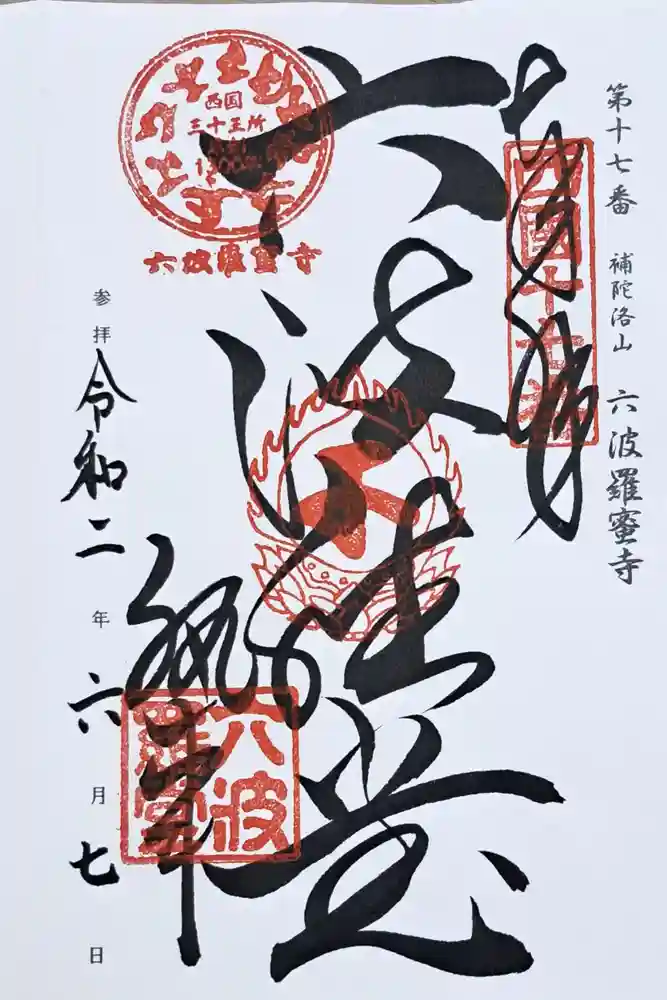 第十七番 補陀洛山 六波羅蜜寺
奉拝
西国十七番
六波羅堂
西国
三十三所
六波羅蜜寺
六波
羅蜜
参拝 令和二年六月七日